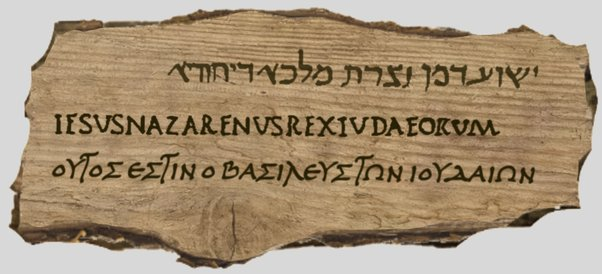 ישוע דמן נצרת מלכא דיהודא
IESUSNAZARENUSREXIUDAEORUM
ΟΥΤΟΣ ΕΣΤΙΝ Ο ΒΑΣΙΛΕΥΣ ΤΩΝ ΙΟΥΔΑΙΩΝ